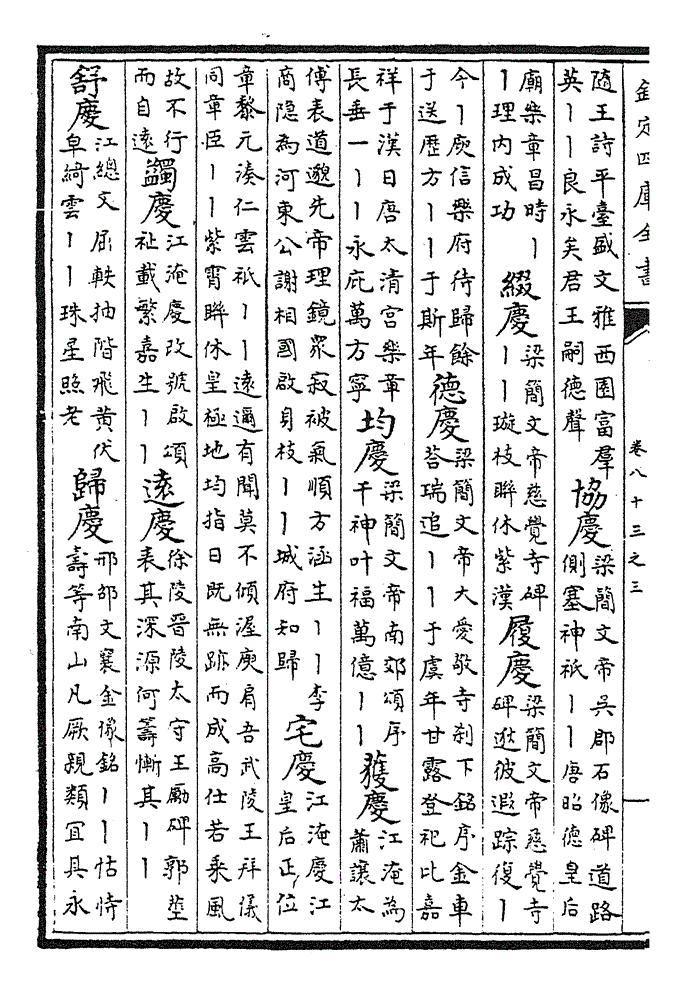 欽定四庫全書
卷八十三之三
隨王詩平臺盛文雅西園富羣
英丨丨良永矣君王嗣德聲
協慶
梁簡文帝吳郡石像碑道路
側塞神祇丨丨唐昭德皇后
廟樂章昌時丨
丨理内成功
綴慶
梁簡文帝慈覺寺碑
丨丨璇枝聨休紫漢
履慶
梁簡文帝慈覺寺
碑逖彼遐踪復丨
今丨庾信樂府待歸餘
于送歷方丨丨于斯年
德慶
梁簡文帝大愛敬寺刹下銘序金車
荅瑞追丨丨于虞年甘露登祀比嘉
祥于漢日唐太清宫樂章
長垂一丨丨永庇萬方寧
均慶
梁簡文帝南郊頌序
千神叶福萬億丨丨
獲慶
江淹為
蕭讓太
傅表道邈先帝理鏡衆寂被氣順方涵生丨丨李
商隐為河東公謝相國啟自枝丨丨城府知歸
宅慶
江淹慶江
皇后正位
章黎元湊仁雲祇丨丨遠邇有聞莫不傾渥庾肩吾武陵王拜儀
同章臣丨丨紫霄聨休皇極地均指日既無跡而成高仕若乘風
故不行
而自遠
蠲慶
江淹慶改號啟頌
祉載繁嘉生丨丨
遠慶
徐陵晉陵太守王勵碑郭塋
表其深源何籌慚其丨丨
舒慶
江總文屈軼抽階飛黄伏
皁綺雲丨丨珠星照老
歸慶
邢邵文襄金像銘丨丨怙恃
壽等南山凡厥親類冝具永